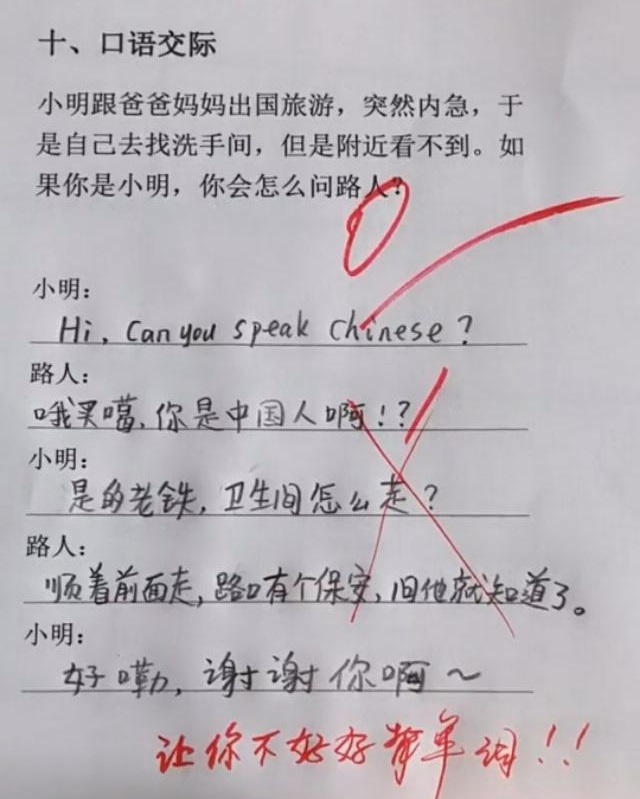 十、口语交际
小明跟爸爸妈妈出国旅游，突然内急，于
是自己去找洗手间，但是附近看不到。如
果你是小明，你会怎么问路人？
0
小明：
Hi, Can you speak Chinese?
路人：
哦买噶，你是中国人啊！？
小明：
是的老铁，卫生间怎么走？
路人：
顺着前面走，路口有个保安，问他就知道了。
小明：
好嘞，谢谢你啊～
让你不好好背单词！！